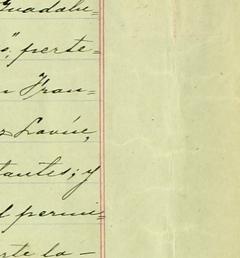 Guadalu=
", perte=
n Fran=
z Lavín,
tantes; y
l permi=
rte la-